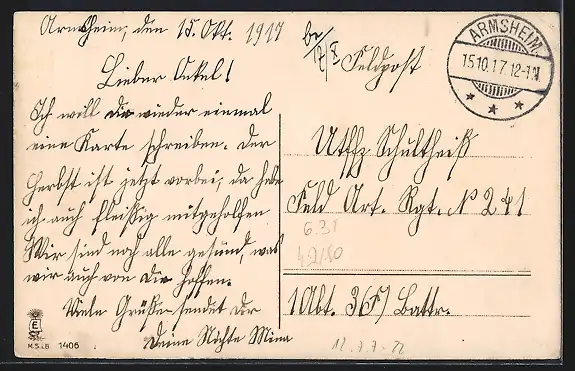 Armsheim, den 15. Okt. 1917
Lieber Onkel!
Ich will dir wieder einmal
eine Karte schreiben. Der
Herbst ist jetzt vorbei, da habe
ich auch fleißig mitgeholfen
Wir sind noch alle gesund, was
wir auch von Dir hoffen.
Viele Grüße sendet dir
Deine Nichte Mina
Feldpost
ARMSHEIM.
15.10.17.12-1N.
Utffz Schultheiß
Feld Art. Rgt. N 241
1 Abt. 3 Battr.
6.31
42/80
12.7.7-22
E
M.S.i.B. 1406